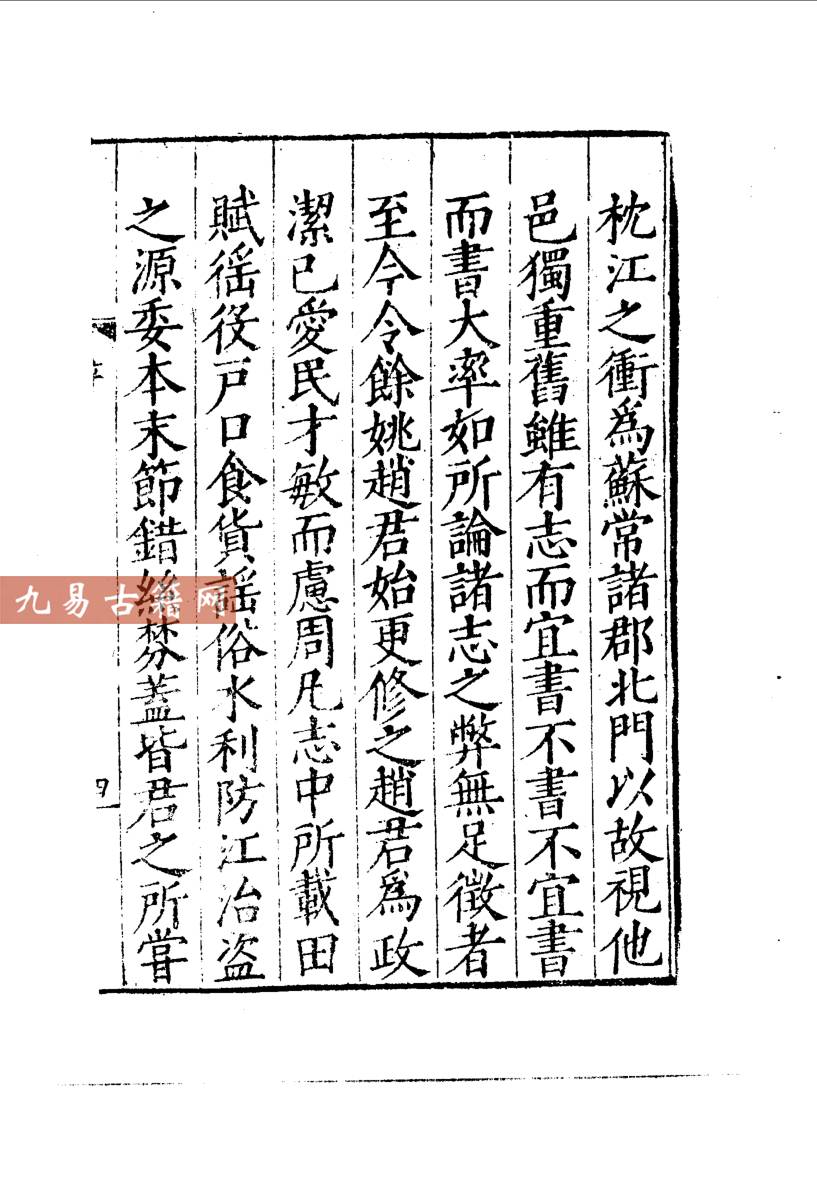 枕江之衝爲蘇常諸郡北門以故視他
邑獨重舊雖有志而宜書不書不宜書
而書大率如所論諸志之弊無足徴者
至今令餘姚趙君始更修之趙君爲政
潔已愛民才敏而慮周凡志中所載田
賦徭役戸口食貨謡俗水利防江治盗
之源委本末節錯絲棼蓋皆君之所甞
四
九易古籍网